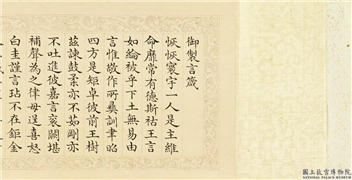 御製言箴
恢恢寰宇一人是主維
命靡常有德斯祜王言
如綸被乎下土無易由
言惟敬作所彞訓聿昭
四方是矩卓彼前王樹
茲諫鼓柔亦不茹剛亦
不吐進彼嘉言袞闕堪
補聲為之律毋逞喜怒
白圭謹言玷不在鉅金
國立故宮博物院
NATIONAL PALACE MUSEUM